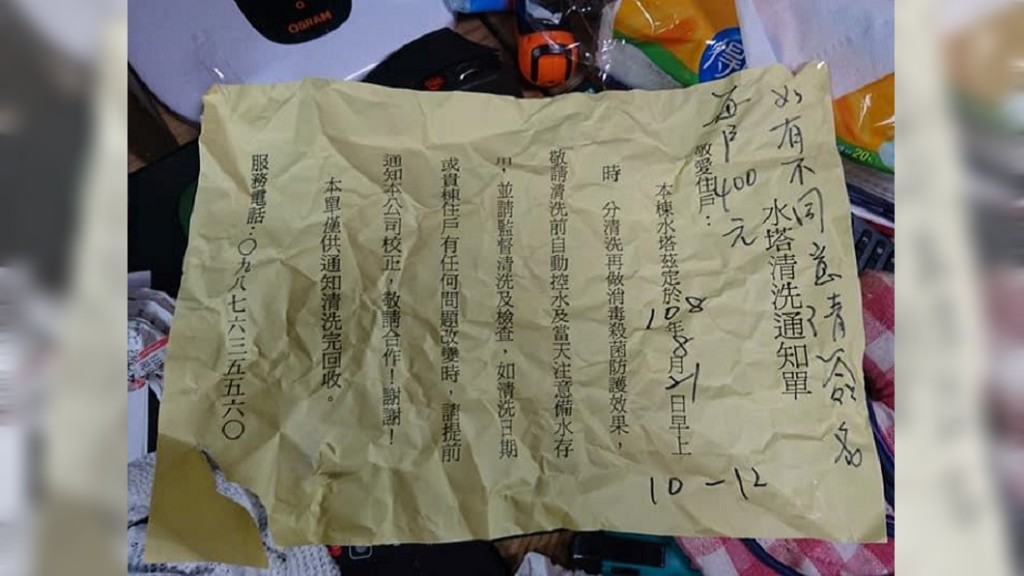 如有不同意請簽名
水塔清洗通知單
每戶400元
敬愛住戶：
本棟水塔茲定於108年8月21日早上
10-12
時 分清洗再做消毒殺菌防護效果，
敬請清洗前自動控水及當天注意備水存
用，並請監督清洗及檢查，如清洗日期
或貴棟住戶有任何問題改變時，請提前
通知本公司校正，敬請合作！謝謝！
本單僅供通知清洗完回收。
服務電話：〇九八七六三五五六〇
OSRAM